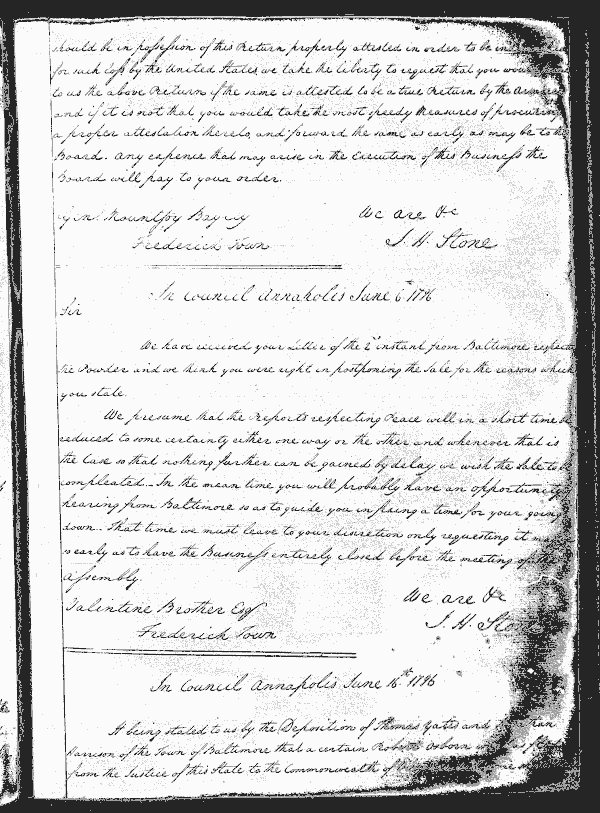 should be in possession of this Return properly attested in order to be
for such loss by the United States we take the liberty to request that you would
to us the above Return if the same is attested to be a true Return by the
and if it is not that you would take the most speedy Measures of procuring
a proper attestation thereto, and forward the same as early as may be to the
Board. Any expence that may arise in the Execution of this Business the
Board will pay to your order.
We are &c
Genl. Mountjoy Bayly
J. H. Stone
Frederick Town
In Council Annapolis June 6th 1796
Sir
We have received your Letter of the 2d instant from Baltimore
the Powder and we think you were right in postponing the Sale for the reasons which
you state.
We presume that the Reports respecting Peace will in a short time be
reduced to some certainty either one way or the other and whenever that is
the Case so that nothing further can be gained by delay we wish the Sale to be
compleated. In the mean time you will probably have an opportunity of
hearing from Baltimore so as to guide you in fixing a time for your going
down. That time we must leave to your discretion only requesting it may
so early as to have the Business entirely closed before the meeting of the
Assembly.
We are &c
Valintine Brother Esqr
J. H. Sto
Frederick Town
In Council Annapolis June 16th 1796
It being stated to us by the Deposition of Thomas Yates and
Harrison of the Town of Baltimore that a certain Robert Osborn
from the Justice of this State to the Commonwealth of